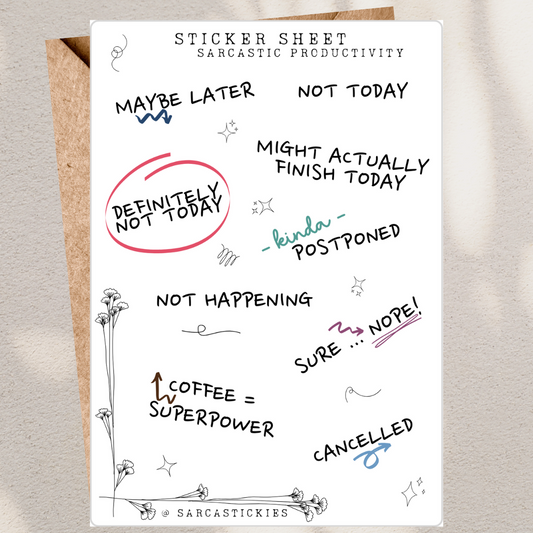 STICKER SHEET
SARCASTIC PRODUCTIVITY
MAYBE LATER
NOT TODAY
MIGHT ACTUALLY
FINISH TODAY
DEFINITELY
NOT TODAY
- kinda -
POSTPONED
NOT HAPPENING
SURE ... NOPE!
COFFEE =
SUPERPOWER
CANCELLED
@ SARCASTICKIES